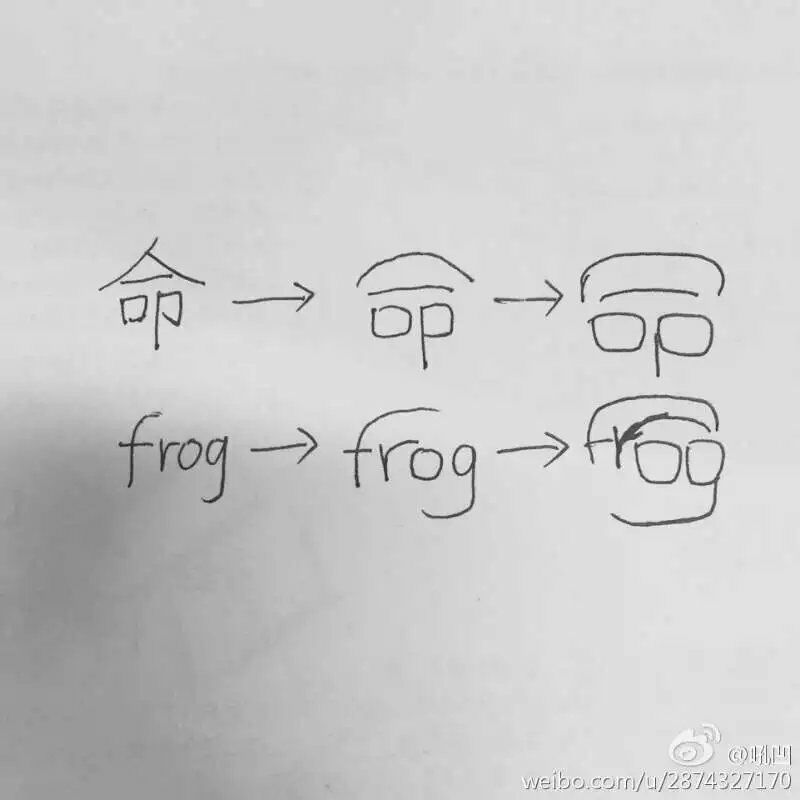 命 → 命 → 命
frog → frog → frog
@吼凹
weibo.com/u/2874327170